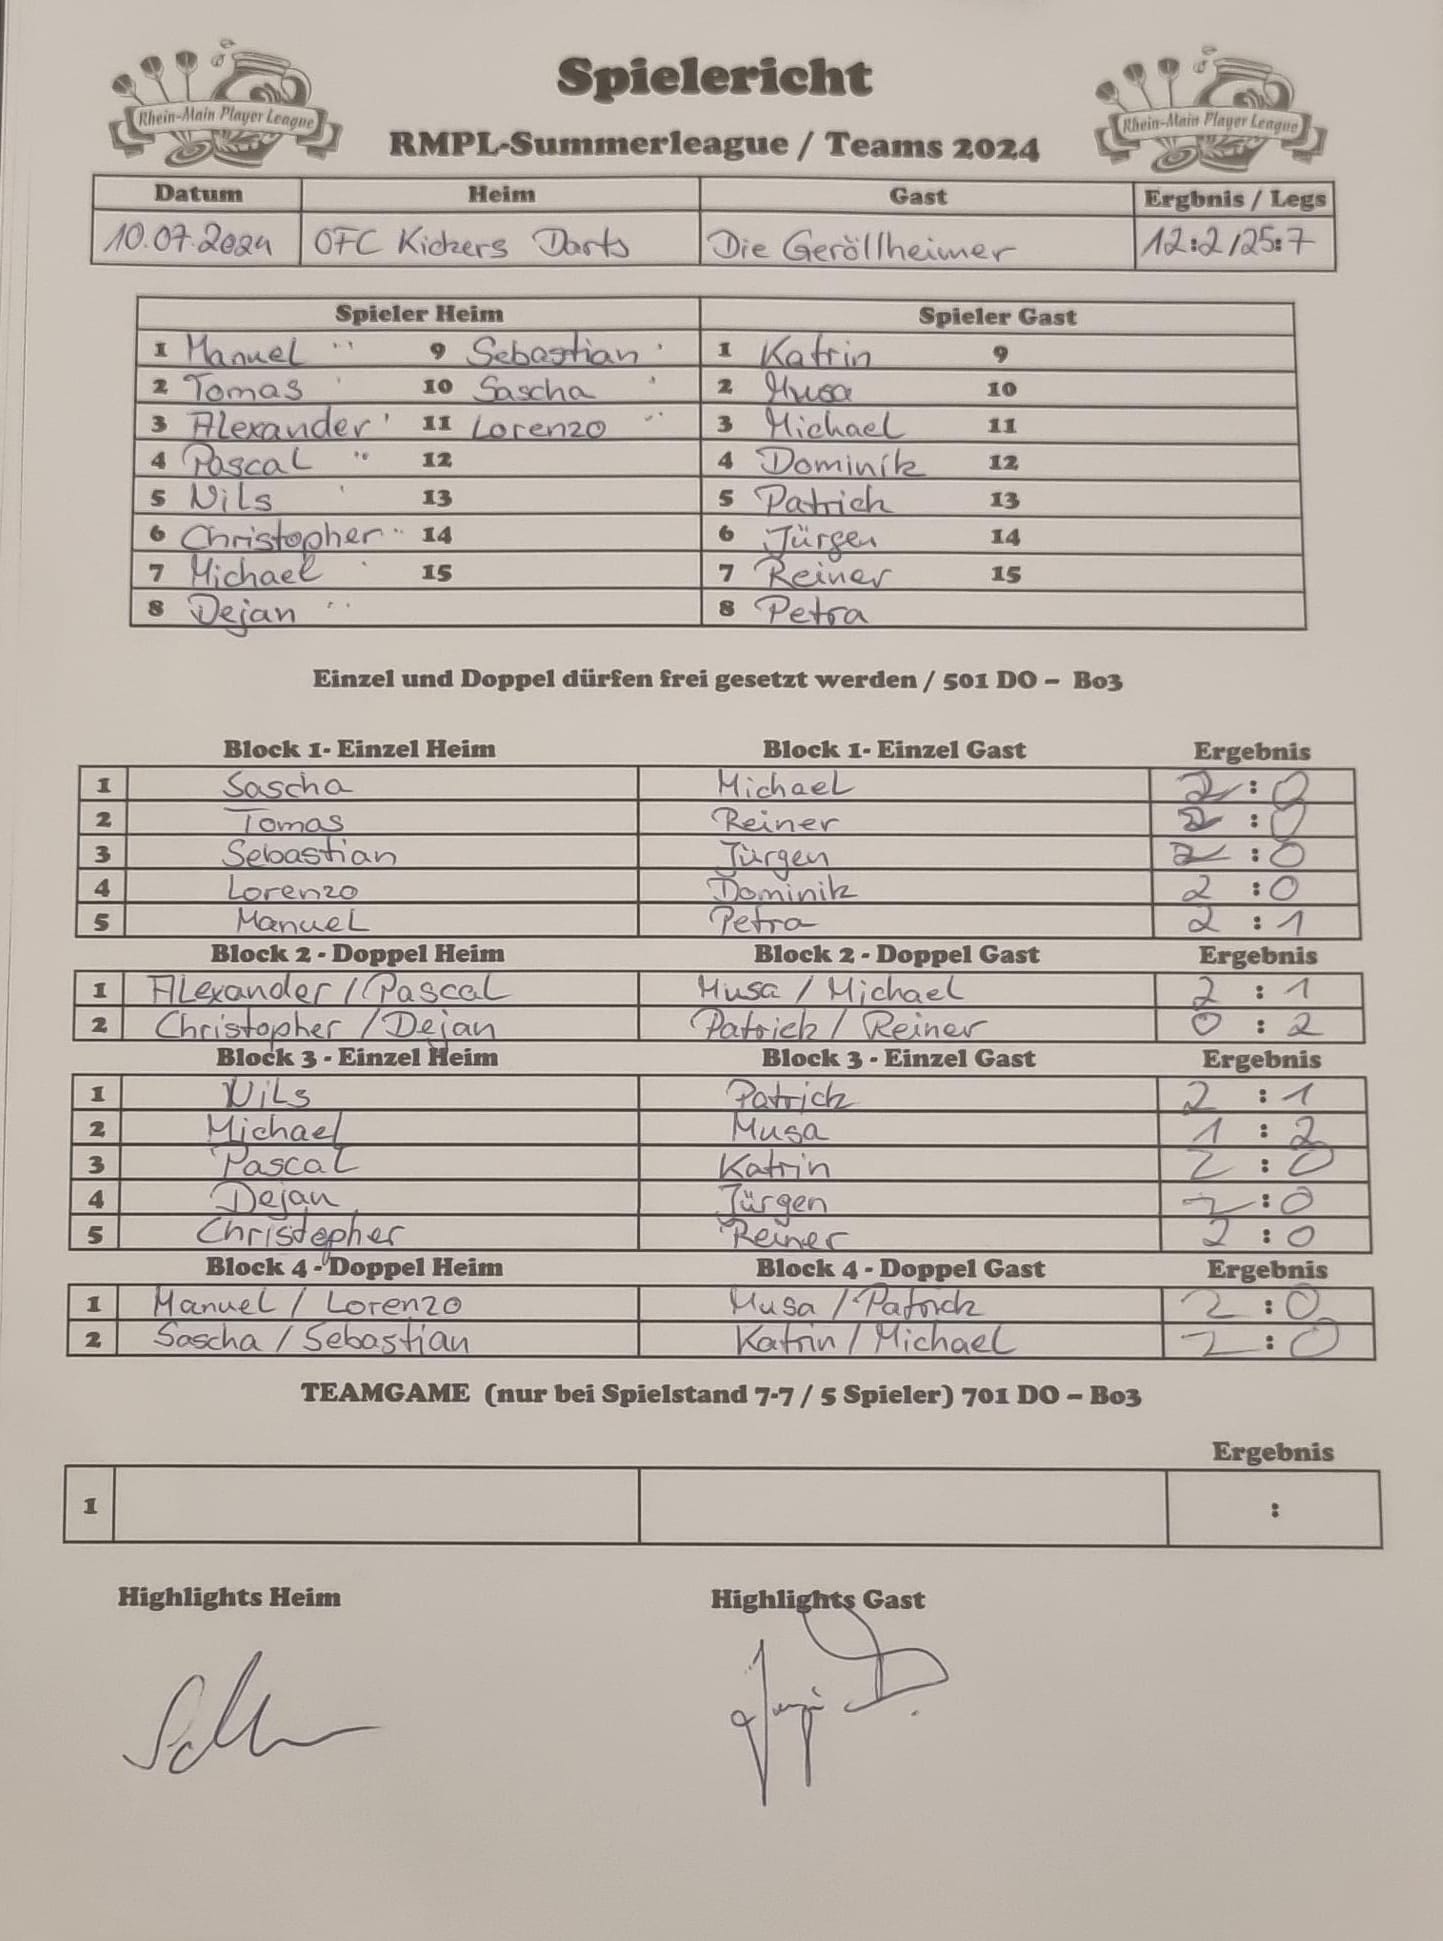 Spielericht
Rhein-Main Player League
Rhein-Main Player League
RMPL-Summerleague / Teams 2024
Datum Heim Gast Ergbnis / Legs
10.07.2024 OFC Kickers Darts Die Geröllheimer 12:2/25:7
Spieler Heim Spieler Gast
1 Manuel 9 Sebastian 1 Katrin 9
2 Tomas 10 Sascha 2 Musa 10
3 Alexander 11 Lorenzo 3 Michael 11
4 Pascal 12 4 Dominik 12
5 Nils 13 5 Patrick 13
6 Christopher 14 6 Jürgen 14
7 Michael 15 7 Reiner 15
8 Dejan 8 Petra
Einzel und Doppel dürfen frei gesetzt werden / 501 DO – Bo3
Block 1- Einzel Heim Block 1- Einzel Gast Ergebnis
1 Sascha Michael 2 : 0
2 Tomas Reiner 2 : 0
3 Sebastian Jürgen 2 : 0
4 Lorenzo Dominik 2 : 0
5 Manuel Petra 2 : 1
Block 2 - Doppel Heim Block 2 - Doppel Gast Ergebnis
1 Alexander / Pascal Musa / Michael 2 : 1
2 Christopher / Dejan Patrick / Reiner 0 : 2
Block 3 - Einzel Heim Block 3 - Einzel Gast Ergebnis
1 Nils Patrick 2 : 1
2 Michael Musa 1 : 2
3 Pascal Katrin 2 : 0
4 Dejan Jürgen 2 : 0
5 Christopher Reiner 2 : 0
Block 4 - Doppel Heim Block 4 - Doppel Gast Ergebnis
1 Manuel / Lorenzo Musa / Patrick 2 : 0
2 Sascha / Sebastian Katrin / Michael 2 : 0
TEAMGAME (nur bei Spielstand 7-7 / 5 Spieler) 701 DO – Bo3
Ergebnis
1 :
Highlights Heim Highlights Gast